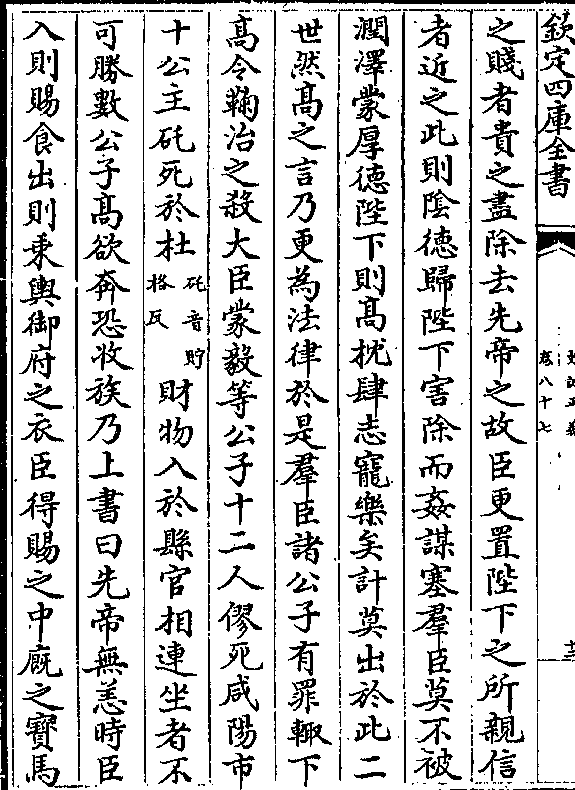 欽定四庫全書
史記正義
卷八十七
之賤者貴之盡除去先帝之故臣更置陛下之所親信
者近之此則隂德歸陛下害除而姦謀塞羣臣莫不被
潤澤蒙厚德陛下則髙枕肆志寵樂矣計莫出於此二
世然髙之言乃更為法律於是羣臣諸公子有罪輙下
髙令鞠治之殺大臣蒙毅等公子十二人僇死咸陽市
十公主矺死於杜矺音貯格反財物入於縣官相連坐者不
可勝數公子髙欲奔恐收族乃上書曰先帝無恙時臣
入則賜食出則乗輿御府之衣臣得賜之中廐之寶馬